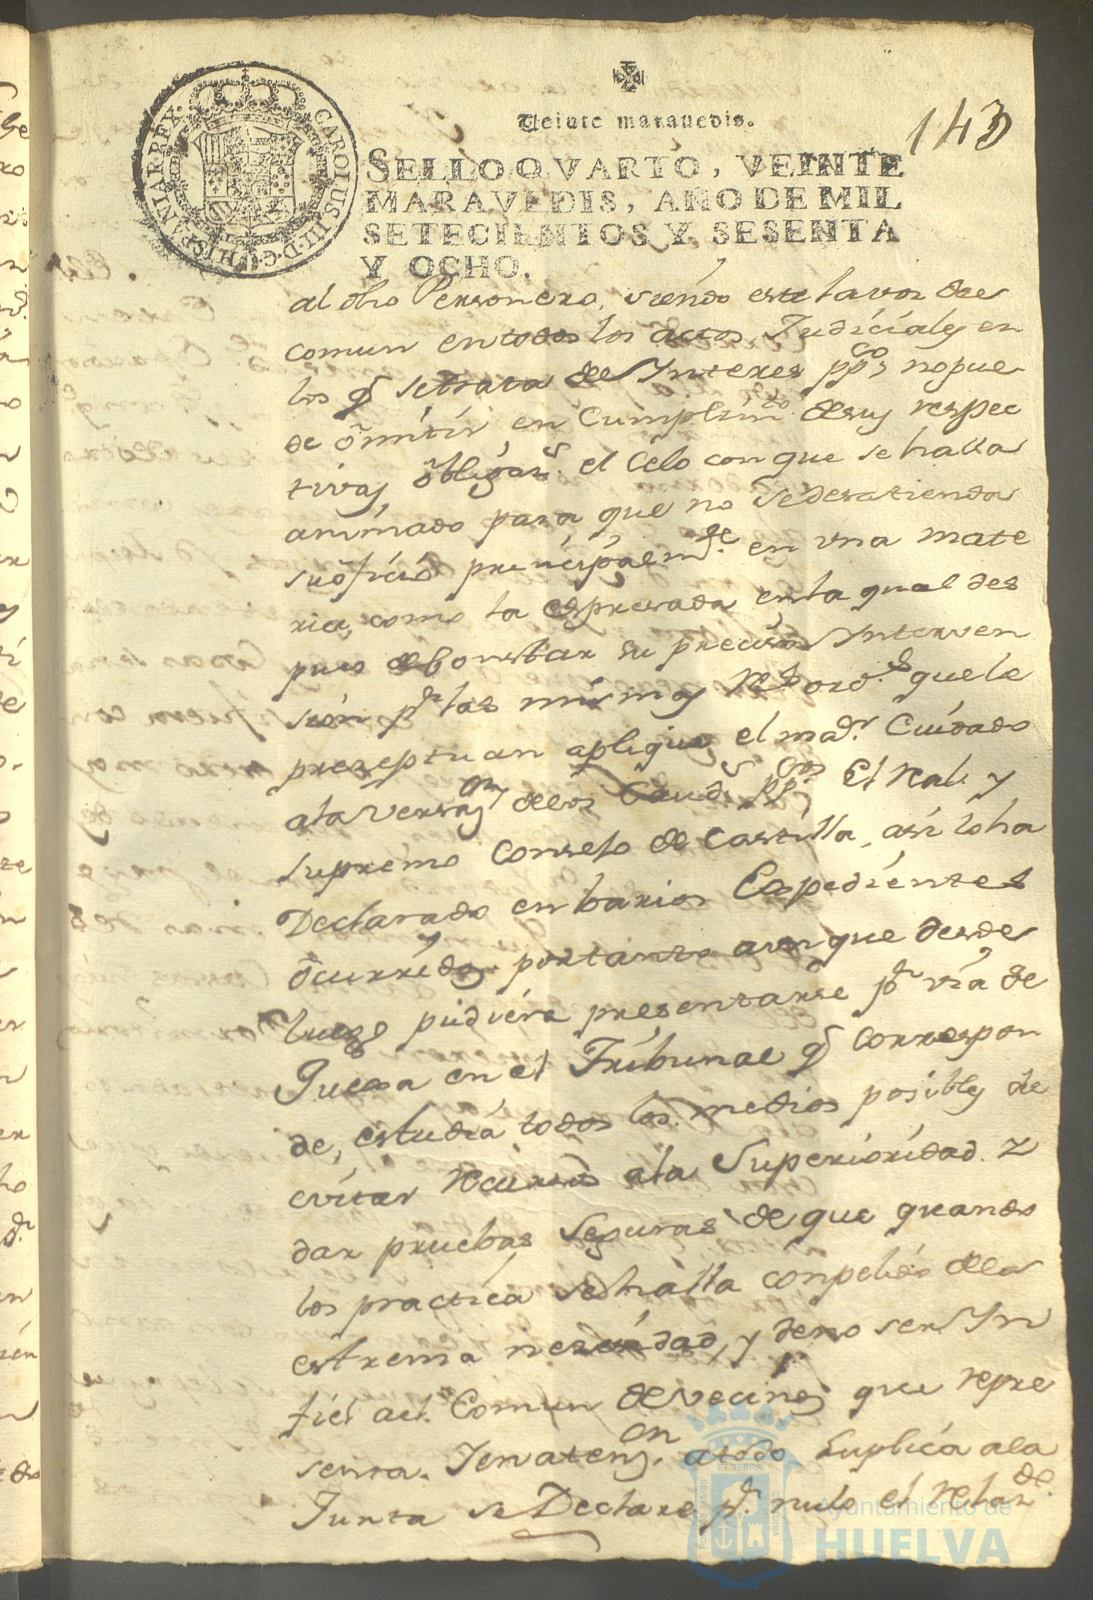 143
Veinte maravedis.
CAROLUS III D G HISPANIAR REX
SELLO QVARTO, VEINTE
MARAVEDIS, AÑO DE MIL
SETECIENTOS Y SESENTA
Y OCHO.
al dho Personero, siendo este la voz del
comun en todos los actos Judiciales en
los q̃ se trata de Ynteres ppcos, no pue
de omitir en Cumplimto de sus respec
tivas obligans. el Celo con que se halla
animado para que no se desatienda
su oficio principalmte en una mate
ria, como la espresada en la qual des
pues de constar su precisa Interven
sion pr las mismas Rs ordns que le
preseptuan aplique el maor Cuidado
ala Versaon de los Cauds ppcos El Real y
supremo Consejo de Castilla, asi lo ha
Declarado en barios Expedientes
ocurridos. por tanto aunque desde
luego pudiera presentarse pr via de
Quexa en el Tribunal q̃ correspon
de, estudia todos los medios posibles de
evitar recursos ala Superioridad y
dar pruebas seguras de que quando
los practica se halla conpelido dela
estrema nesesidad, y de no ser Yn
fiel al Comun de vecinos que repre
senta. Y en atenon. a todo suplica ala
Junta se Declare pr nulo el relaz
do
Ayuntamiento de
HUELVA